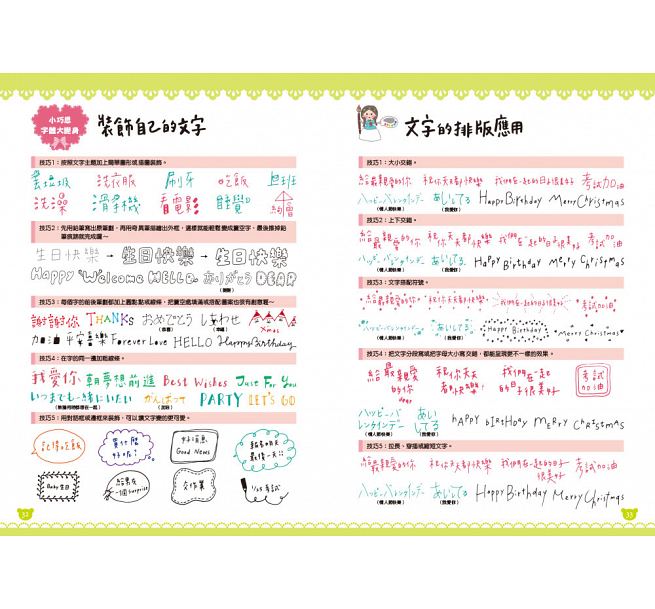 小巧思
字體大變身
裝飾自己的文字
技巧1：按照文字主題加上簡單圖形或插圖裝飾。
丟垃圾 洗衣服 刷牙 吃飯 上班
洗澡 滑手機 看電影 睡覺 約會
技巧2：先用鉛筆寫出原筆劃，再用奇異筆描繪出外框，這樣就能輕鬆變成簍空字，最後擦掉鉛筆痕跡就完成囉～
生日快樂 → 生日快樂 → 生日快樂
Happy Welcome HELLO ありがとう DEAR
（謝謝）
技巧3：每個字的前後筆劃都加上圓點點或線條，把簍空處填滿或搭配圖案也很有創意喔～
謝謝你 THANKs おめでとう しあわせ Xmas
（恭喜） （幸福）
加油 平安喜樂 Forever Love HELLO Happy Birthday
技巧4：在字的同一邊加粗線條。
我愛你 朝夢想前進 Best Wishes Just For You
いつまでも一緒にいたい がんばって PARTY LET'S GO
（無論何時都想在一起） （加油）
技巧5：用對話框或邊框來裝飾，可以讓文字變的更可愛。
記得吃飯
買什麼
好呢？
好消息
Good News
報名明天
最後一天!!
Baby 生日
給男友
一個 Surprise
交作業
1/25 考試
32
文字的排版應用
技巧1：大小交錯。
給最親愛的你 祝你天天都快樂 我們在一起的日子很美好 考試加油
ハッピーバレンタインデー あいしてる Happy Birthday Merry Christmas
（情人節快樂） （我愛你）
技巧2：上下交錯。
給最親愛的你 祝你天天都快樂 我們在一起的日子很美好 考試加油
ハッピーバレンタインデー あいしてる Happy Birthday Merry Christmas
（情人節快樂） （我愛你）
技巧3：文字搭配符號。
給最親愛的你 祝你天天都快樂 我們在一起的日子很美好 考試加油
ハッピーバレンタインデー あいしてる Happy Birthday Merry Christmas
（情人節快樂） （我愛你）
技巧4：把文字分段寫或把字母大小寫交錯，都能呈現更不一樣的效果。
給最親愛
的你
dear
祝你天天
都快樂！
我們在一起
的日子很美好
考試
加油
ハッピーバ
レンタインデー
あい
してる
hAPPy biRTHday MERRy ChRisTmAs
（情人節快樂） （我愛你）
技巧5：拉長、穿插或縮短文字。
給最親愛的你 祝你天天都快樂 我們在一起的日子很美好 考試加油
ハッピーバレンタインデー あいしてる Happy Birthday Merry Christmas
（情人節快樂） （我愛你）
33